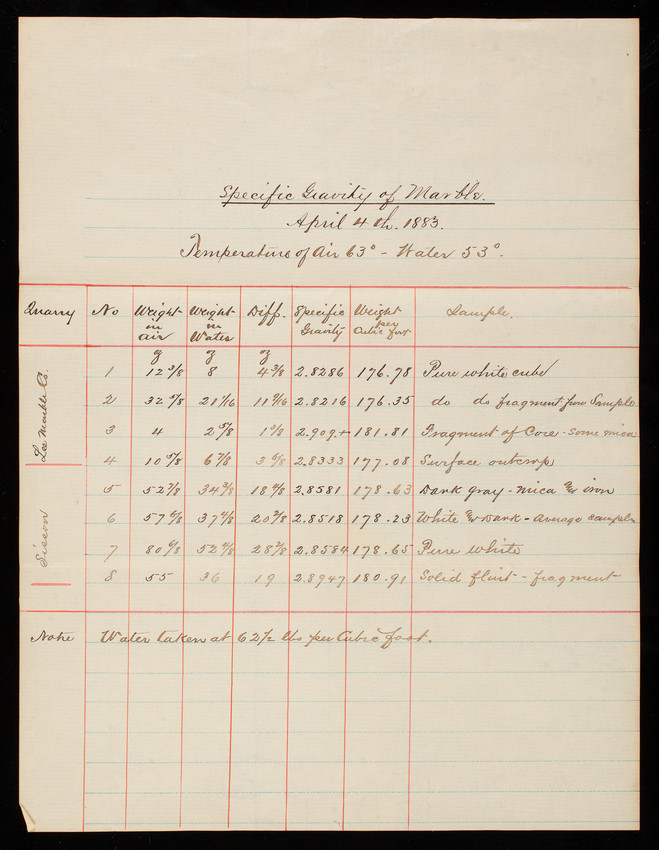 Specific Gravity of Marble.
April 4th. 1883.
Temperature of Air 63° - Water 53°.
Quarry No Weight in air Weight in Water Diff. Specific Gravity Weight per Cubic foot Sample.
℥ ℥ ℥
Lee Marble Co.
1 12 3/8 8 4 3/8 2.8286 176.78 Pure white cube
2 32 5/8 21 1/16 11 9/16 2.8216 176.35 do do fragment from Sample
3 4 2 5/8 1 3/8 2.909+ 181.81 Fragment of Core - some mica
4 10 5/8 6 7/8 3 6/8 2.8333 177.08 Surface outcrop
Sisson
5 52 7/8 34 3/8 18 4/8 2.8581 178.63 Dark gray - mica & iron
6 57 6/8 37 4/8 20 2/8 2.8518 178.23 White & Dark - average sample
7 80 6/8 52 4/8 28 2/8 2.8584 178.65 Pure white
8 55 36 19 2.8947 180.91 Solid flint - fragment
Note Water taken at 62 1/2 lbs per Cubic foot.